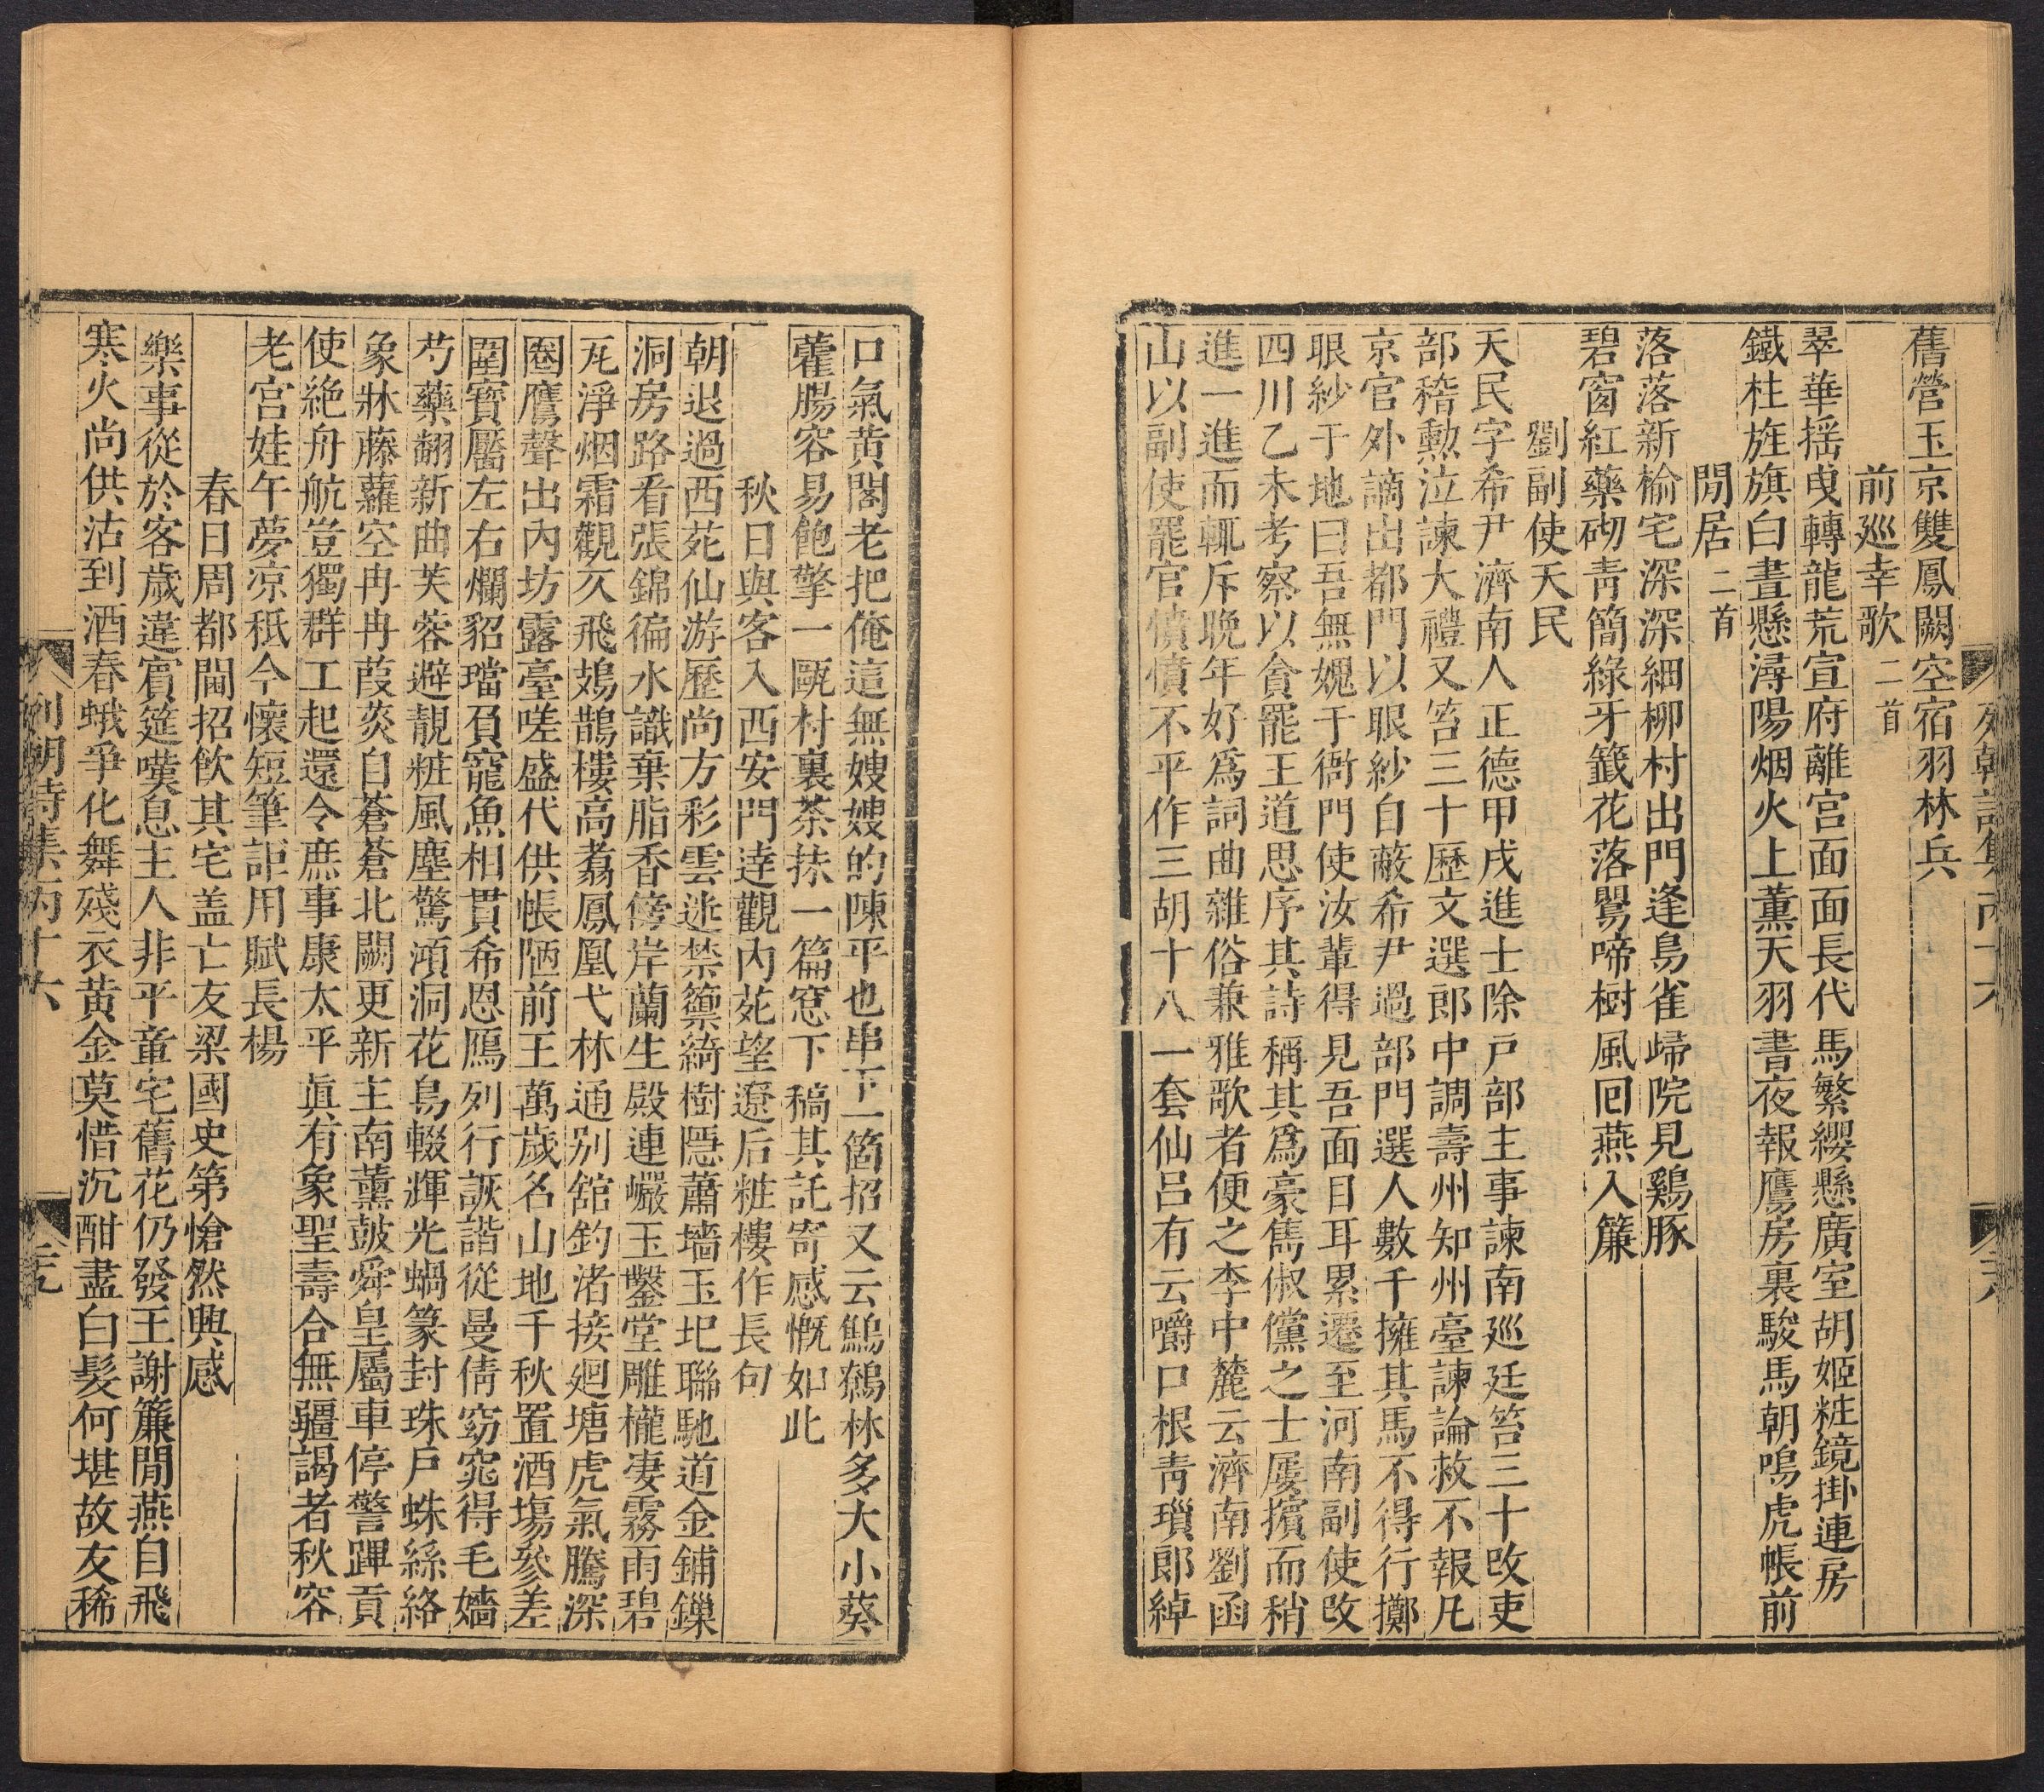 舊營玉京雙鳳闕空宿羽林兵
前巡幸歌二首
翠華揺曳轉龍荒宣府離宮面面長代馬繁纓懸廣室胡姬粧鏡掛連房
鐵柱旌旗白晝懸潯陽烟火上薰天羽書夜報鷹房裏駿馬朝鳴虎帳前
閒居二首
落落新榆宅深深細柳村出門逢鳥雀歸院見鷄豚
碧窗紅藥砌靑簡綠牙籤花落鷃啼樹風囘燕入簾
劉副使天民
天民字希尹濟南人正德甲戌進士除戸部主事諫南廵廷笞三十改吏
部稽勳泣諫大禮又笞三十歷文選郎中調壽州知州臺諫論救不報凡
京官外謫出都門以眼紗自蔽希尹過部門選人數千擁其馬不得行擲
眼紗于地曰吾無媿于衙門使汝輩得見吾面目耳累遷至河南副使改
四川乙未考察以貪罷王道思序其詩稱其爲豪雋俶儻之士屢擯而稍
進一進而輒斥晚年好爲詞曲雜俗兼雅歌者便之李中麓云濟南劉函
山以副使罷官憤憤不平作三胡十八一套仙呂有云嚼口根靑瑣郎綽
口氣黄閣老把俺這無嫂嫂的陳平也串下一箇招又云鷦鷯林多大小葵
藿腸容易飽擎一甌村裏茶抹一篇窓下稿其託寄感慨如此
秋日與客入西安門達觀內苑望遼后粧樓作長句
朝退過西苑仙游歷尚方彩雲迷禁籞綺樹隱蕭墻玉圯聯馳道金鋪鏁
洞房路看張錦徧水識棄脂香傍岸蘭生殿連巗玉鑿堂雕櫳凄霧雨碧
瓦淨烟霜觀仄飛鳷鵲樓高翥鳳凰弋林通别舘釣渚接廻塘虎氣騰深
圈鷹聲出內坊露臺嗟盛代供帳陋前王萬歲名山地千秋置酒塲參差
圍寶靨左右爛貂璫負寵魚相貫希恩鴈列行詼諧從曼倩窈窕得毛嬙
芍藥翻新曲芙蓉避靚粧風塵驚澒洞花鳥輟輝光蝸篆封珠戸蛛絲絡
象牀藤蘿空冉冉葭菼自蒼蒼北闕更新主南薰鼓舜皇屬車停警蹕貢
使絶舟航豈獨群工起還令庶事康太平眞有象聖壽合無疆謁者秋容
老宮娃午夢凉秖今懷短筆詎用賦長楊
春日周都閫招飮其宅盖亡友梁國史第愴然興感
樂事從於客歲違賓筵嘆息主人非平童宅舊花仍發王謝簾閒燕自飛
寒火尚供沽到酒春蛾爭化舞殘衣黄金莫惜沉酣盡白髮何堪故友稀
列朝詩集丙十六